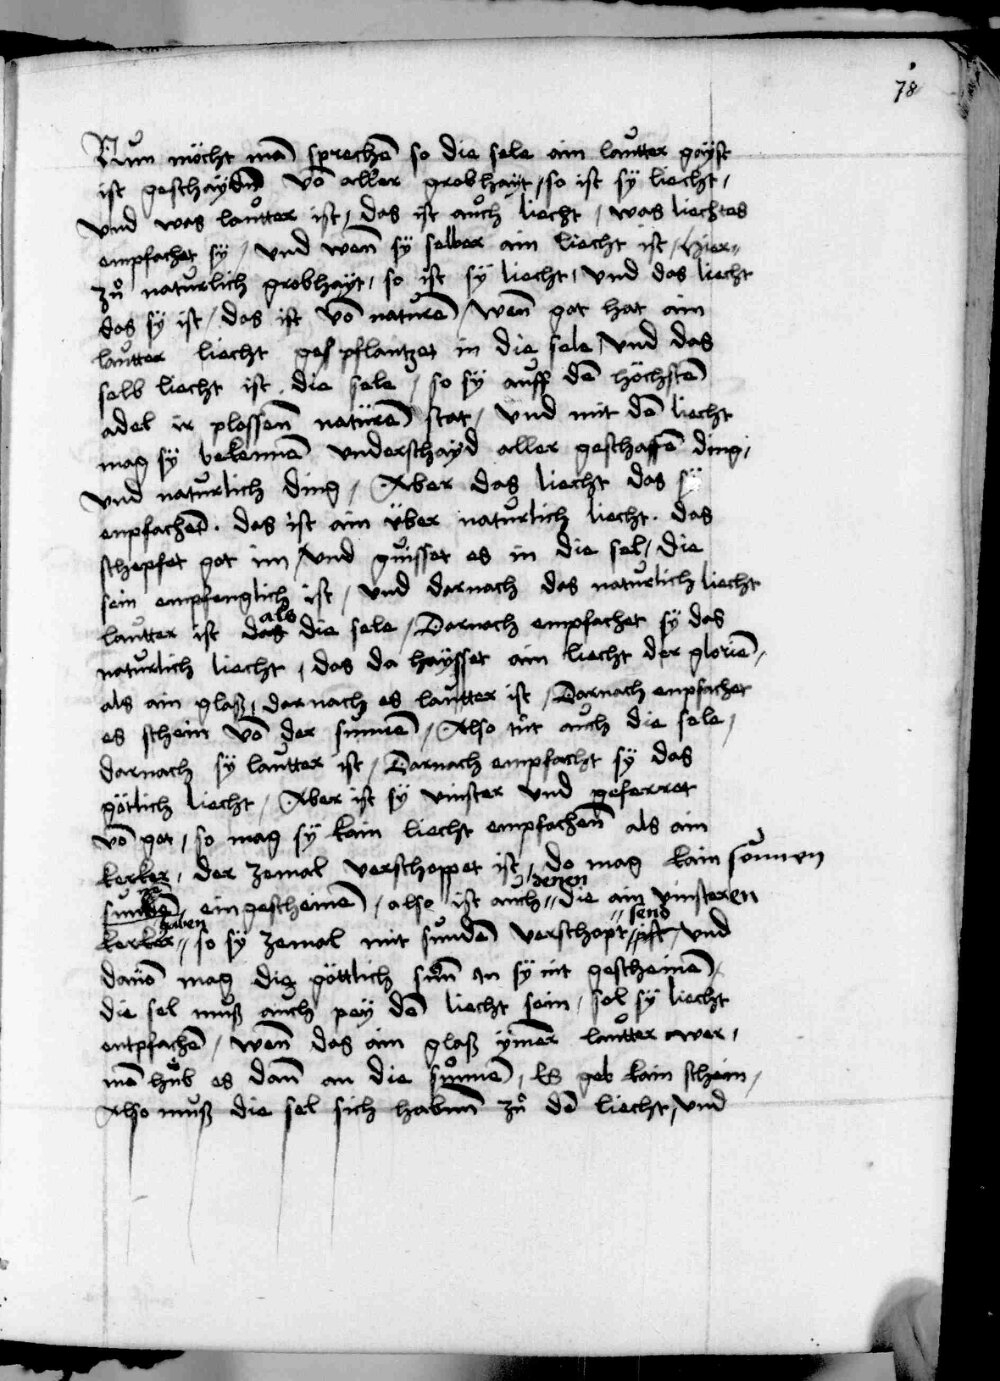 78
Nun möcht mā sprechē so die sele ain lautter gayst
ist geschaydñ vō aller grobhayt / so ist sy liecht /
vnd was lautter ist / das ist auch liecht / was liechtes
empfachet sy / vnd wen̄ sy selber ain liecht ist / hier⸗
zů naturlich grobhayt / so ist sÿ liecht / vnd das liecht
das sy ist / das ist vō naturē / wen̄ got hat ain
lautter liecht gepflantzet in die sele / vnd das
selb liecht ist die sele / so sÿ auff dē höchstē
adel ir plossen̄ naturē stat / vnd mit dē liecht
mag sÿ bekennē vnderschayd aller geschaffē ding /
vnd naturlich ding / Aber das liecht das sÿ
enpfachet . das ist ain über naturlich liecht . das
schepfet got inn / vnd guisset es in die sel / die
sein empfenglich ist / vnd darnach das naturlich liecht
als
lautter ist das die sele / Darnach empfachet sÿ das
naturlich liecht / das da haysset ain liecht der glorie /
als ain glaß / darnach es lautter ist / Darnach enpfachet
es schein vō der sunnē / Also tůt auch die sele /
darnach sÿ lautter ist / Darnach empfacht sÿ das
götlich liecht / Aber ist sÿ vinster vnd geferret
vō got / so mag sÿ kain liecht empfachen̄ als ain
kerker / der zemal verschoppet ist / do mag kain sonnen
denen
eingescheinē / also ist auch die ain vinsteren
haben send
kerker so sy zemal mit sundē verschopt ist / vnd
dauō mag die göttlich sun̄ in sÿ nit gescheinē /
die sel muß auch pey dē liecht sein / sol sÿ liecht
entpfachē / wen̄ das ain glaß ymēr lautter wer /
mē hůb es dan̄ an die sunnē / Es geb kain schein /
Also muß die sel sich habnn̄ zů dē liecht / vnd